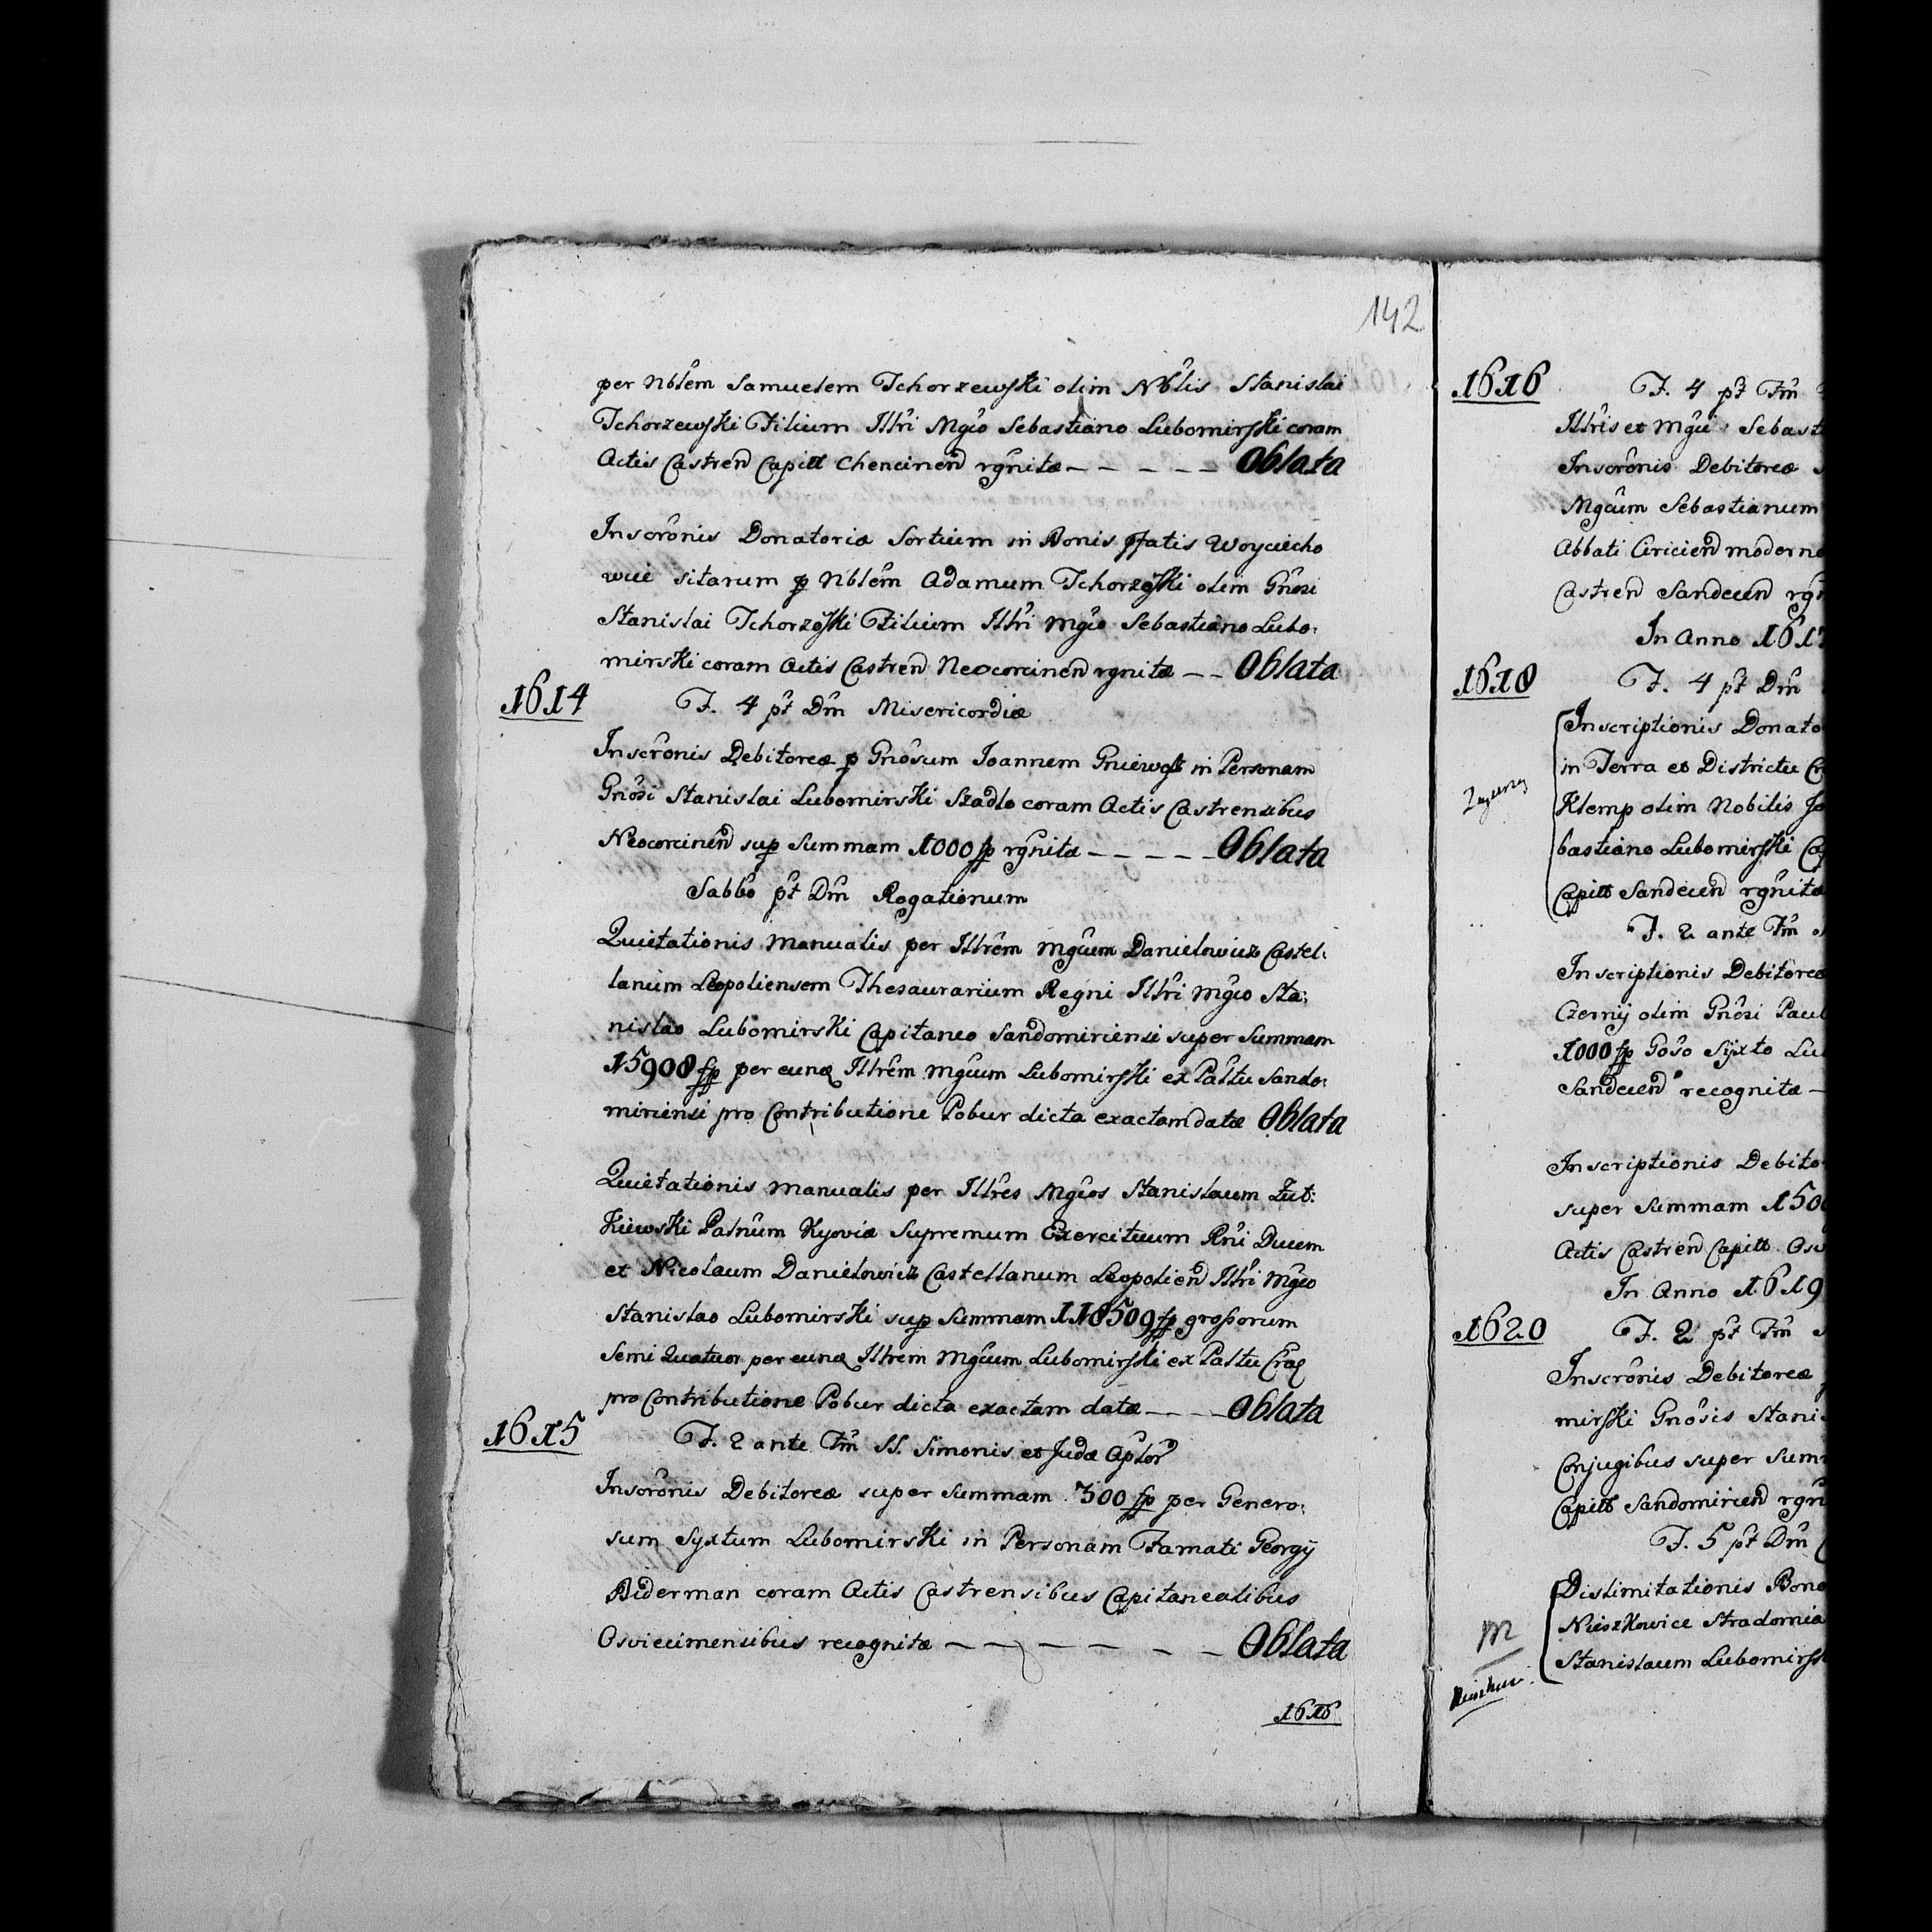 142
per Nblem Samuelem Tchorzewski olim Nblis Stanislai
Tchorzewski Filium Illri Mgco Sebastiano Lubomirski coram
Actis Castren Capitt Chencinen rgnitæ – – – – – Oblata
Inscronis Donatoriæ Sortium in Bonis pfatis Woyciecho
wice sitarum p Nblem Adamum Tchorzoski olim Gnosi
Stanislai Tchorzoski Filium Illri Mgco Sebastiano Lubo:
mirski coram Actis Castren Neocorcinen rgnitæ – – Oblata
1614
F. 4 pt Dm Misericordiæ
Inscronis Debitoreæ p Gnosum Joannem Gniewosz in Personam
Gnosi Stanislai Lubomirski Szadlo coram Actis Castrensibus
Neocorcinen sup Summam 1000 fp rgnitæ – – – – – Oblata
Sabbo pt Dm Rogationum
Quietationis Manualis per Illrem Mgcum Danielowicz Castel:
lanum Leopoliensem Thesaurarium Regni Illri Mgco Sta:
nislao Lubomirski Capitaneo Sandomiriensi super Summam
15908 fp per eunq Illrem Mgcum Lubomirski ex Paltu Sando:
miriensi pro Contributione Pobur dicta exactam datæ Oblata
Quietationis Manualis per Illres Mgcos Stanislaum Zut:
kiewski Palnum Kyoviæ Supremum Exercituum Rni Ducem
et Nicolaum Danielowicz Castellanum Leopolien Illri Mgco
Stanislao Lubomirski sup Summam 118509 fp grossorum
Semi Quatuor per eunq Illrem Mgcum Lubomirski ex Paltu Craq
pro Contributione Pobur dicta exactam datæ – – – Oblata
1615
F. 2 ante Fm SS. Simonis et Judæ Aplor
Inscronis Debitoreæ super Summam 300 fp per Genero:
sum Syxtum Lubomirski in Personam Famati Georgij
Biderman coram Actis Castrensibus Capitanealibus
Osviecimensibus recognitæ – – – – – – Oblata
1616
1616
F. 4 pt Fm
Illris et Mgci Sebast
Inscronis Debitoreæ
Mgcum Sebastianum
Abbati Ciricien moderno
Castren Sandecen rgn
In Anno 1617
1618
F. 4 pt Dm
Inscriptionis Donato
in Terra et Districtu Cr
Klemp olim Nobilis Jo
bastiano Lubomirski Ca
Capitt Sandecen rgnitæ
F. 2 ante Fm
Inscriptionis Debitoreæ
Czerny olim Gnosi Paul
1000 fp Goso Syxto Lu
Sandecen recognitæ –
Inscriptionis Debito
super Summam 150
Actis Castren Capitt Osv
In Anno 1619
1620
F. 2 pt Fm
Inscronis Debitoreæ
mirski Gnosis Stani
Conjugibus super Sum
Capitt Sandomirien rgn
F. 5 pt Dm
Dislimitationis Bono
Nieszkowice Stradomia
Stanislaum Lubomirs